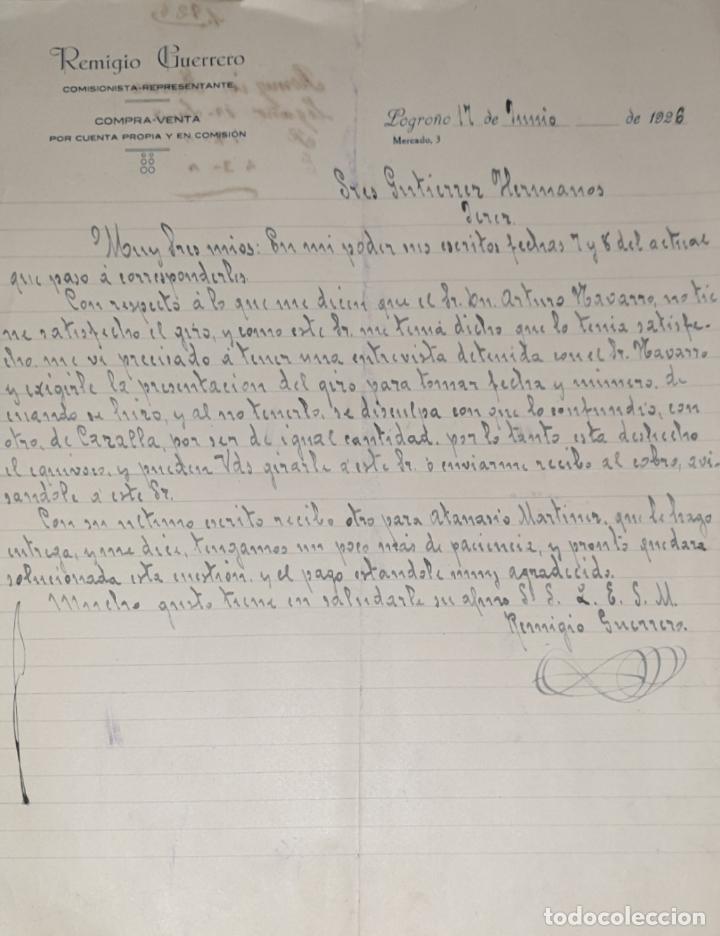 Remigio Guerrero
COMISIONISTA-REPRESENTANTE
COMPRA-VENTA
POR CUENTA PROPIA Y EN COMISIÓN
Logroño 17 de Junio de 1926
Mercado, 3
Sres Gutierrez Hermanos
Jerez.
Muy Sres mios: En mi poder sus escritos fechas 7 y 8 del actual
que paso á corresponderles.
Con respectó á lo que me dicen que el Sr. Dn. Arturo Navarro, no tie
ne satisfecho el giro, y como este Sr. me tenia dicho que lo tenia satisfe-
cho, me vi precisado á tener una entrevista detenida con el Sr. Navarro
y exigirle la presentacion del giro para tomar fecha y numero, de
cuando se hizo, y al no tenerlo, se disculpa con que lo confundió, con
otro, de Cazalla, por ser de igual cantidad. por lo tanto esta deshecho
el equivoco, y pueden Vds girarle a este Sr. ó enviarme recibo al cobro, avi
sandole a este Sr.
Con su escrito recibo otro para Atanasio Martinez, que le hago
entrega, y me dice, tengamos un poco más de paciencia, y pronto quedara
solucionada esta cuestión, y el pago estandole muy agradecido.
Mucho gusto tiene en saludarle su afmo S. S. Q. E. S. M.
Remigio Guerrero.
todocoleccion
todocoleccion.net